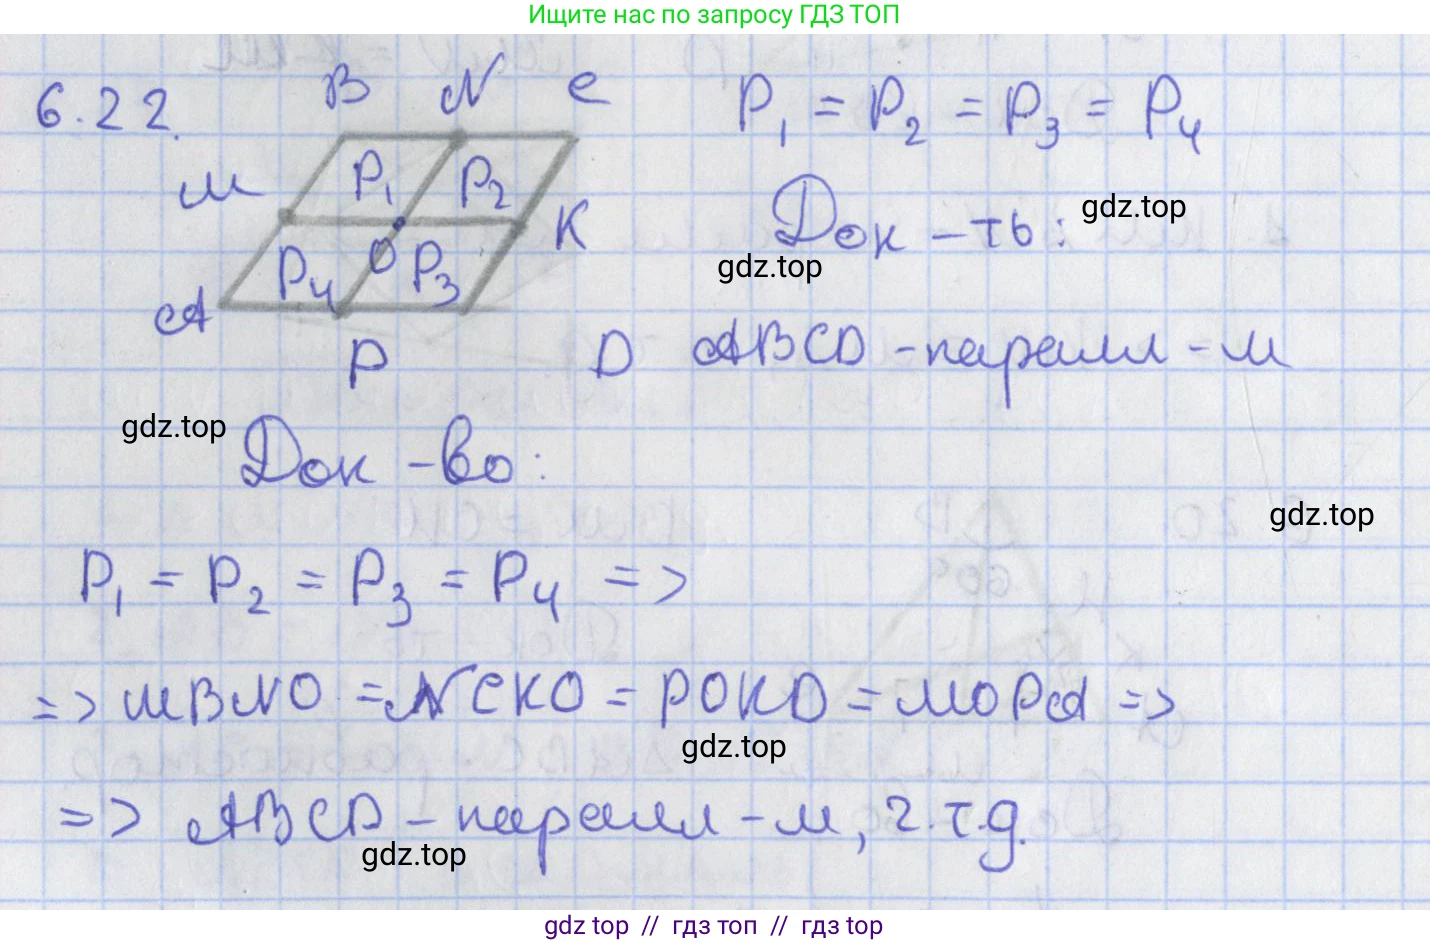 Ищите нас по запросу ГДЗ ТОП
6.22.
B N C
M
P₁ P₂
K
P₄ O P₃
A
P D
P₁ = P₂ = P₃ = P₄
Док-ть:
gdz.top
gdz.top
ABCD - паралл-м
gdz.top
Док-во:
gdz.top
P₁ = P₂ = P₃ = P₄ =>
=> MBNO = NCKO = POKD = MOPA =>
gdz.top
=> ABCD - паралл-м, г.т.д.
gdz.top
gdz top // гдз топ // гдз top